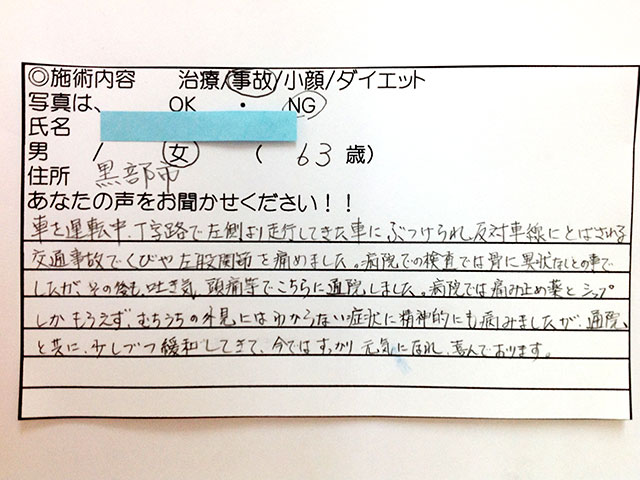 ◎施術内容 治療/事故/小顔/ダイエット
写真は、 OK ・ NG
氏名
男 / 女 ( 63 歳)
住所 黒部市
あなたの声をお聞かせください！！
車を運転中、丁字路で左側より走行してきた車にぶつけられ、反対車線にとばされる
交通事故でくびや左股関節を痛めました。病院での検査では骨に異状なしとの事で
したが、その後も、吐き気、頭痛等でこちらに通院しました。病院では痛み止め薬とシップ
しかもらえず、むちうちの外見にはわからない症状に精神的にも病みましたが、通院
と共に、少しづつ緩和してきて、今ではすっかり元気になれ、喜んでおります。